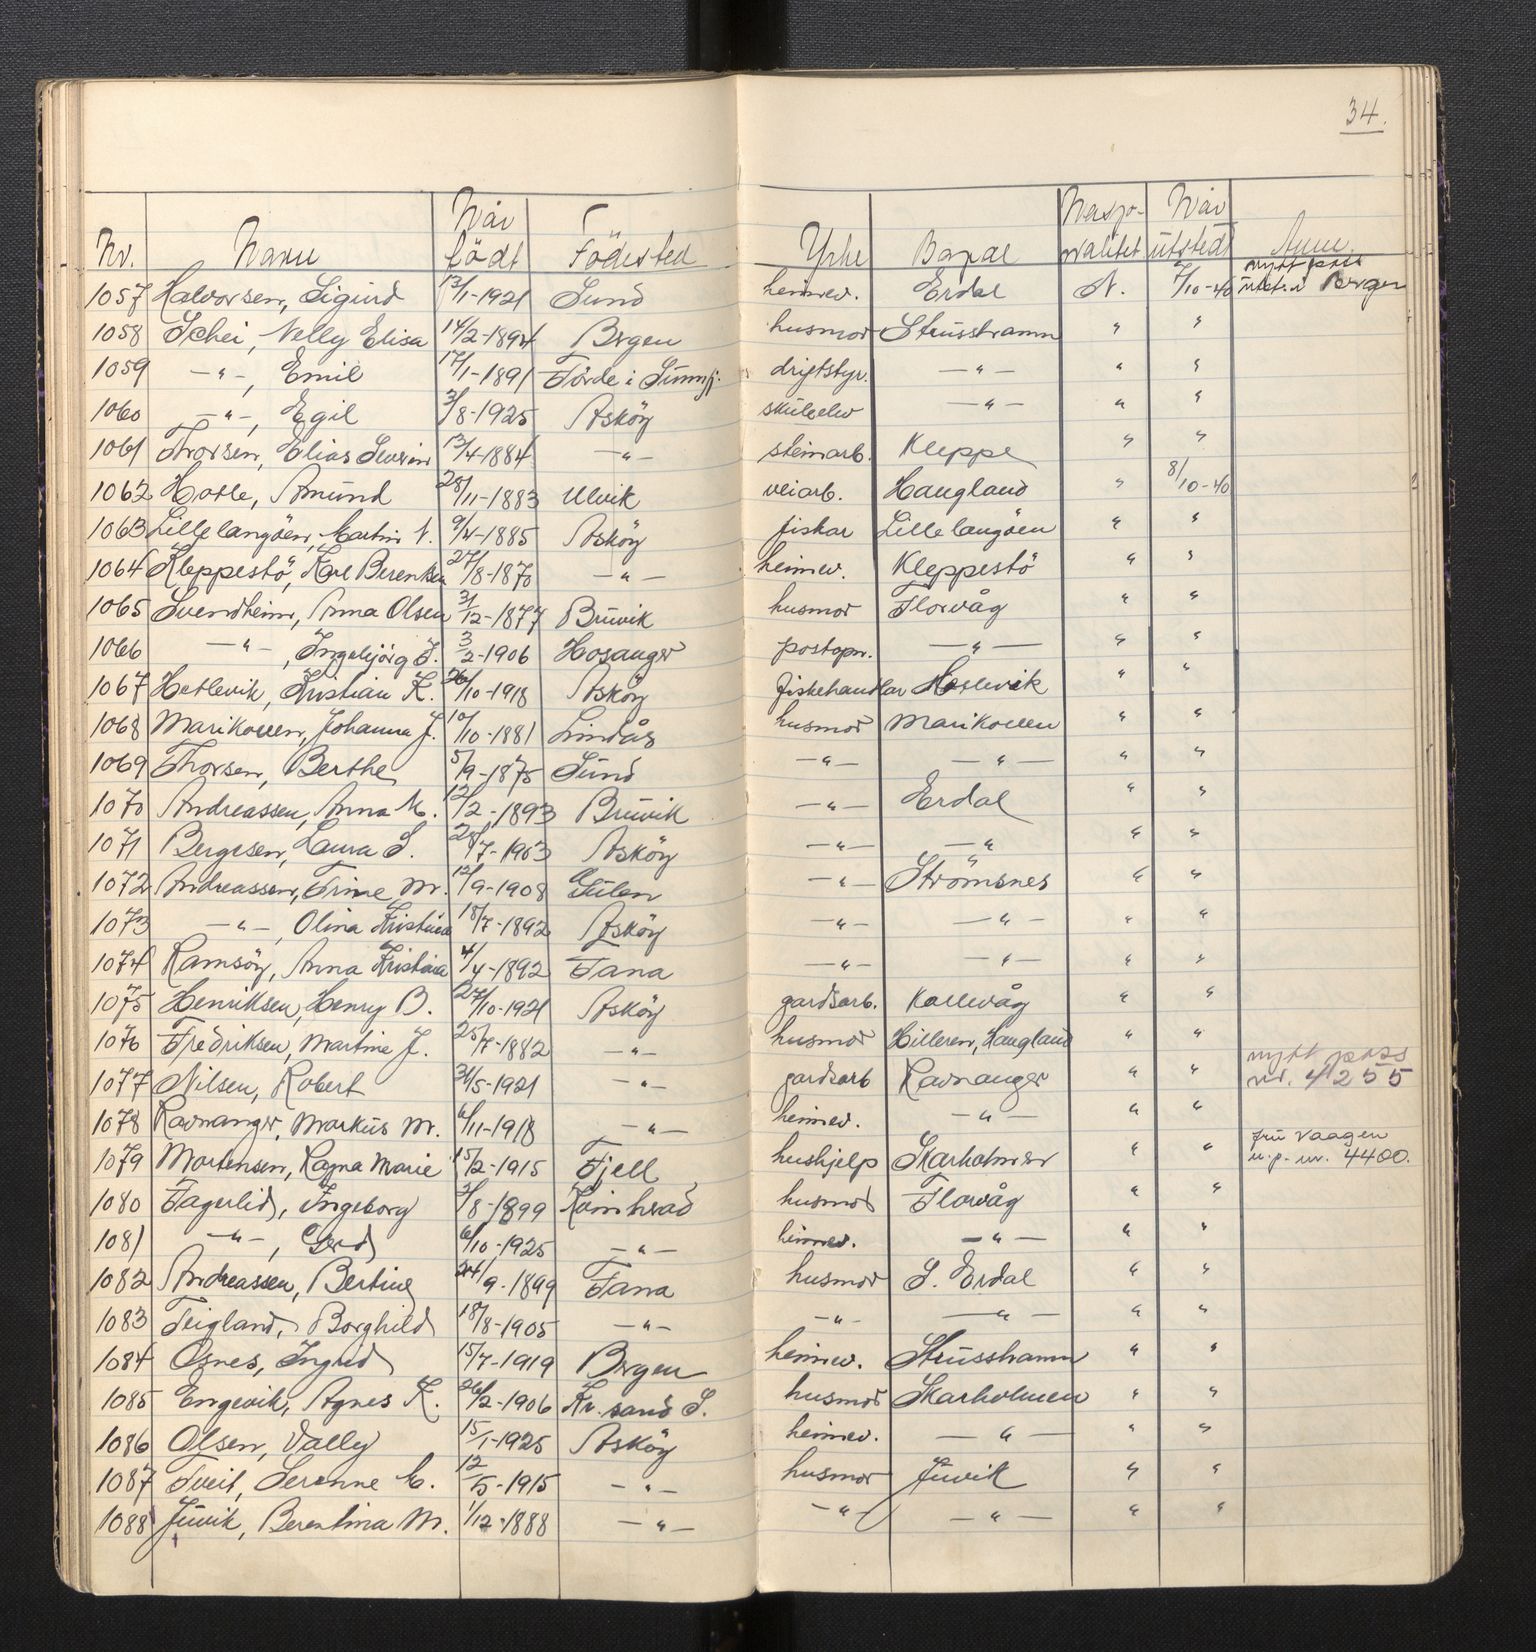 34.
Nr. Namn Når födt Födested Yrke Bopæl Nasjonalitet Når utstedt Anm.
1057 Halvorsen, Sigurd 13/1-1921 Sund heimev. Erdal N. 7/10-40 nytt pass utst. i Bergen
1058 Schei, Nelly Elisa 14/2-1894 Brgen husmor Strusshamn " "
1059 -"-, Emil 17/1-1891 Förde i Sunnfj. driftstyr. -"- " "
1060 -"-, Egil 3/8-1925 Asköy skuleelev -"- " "
1061 Thorsen, Elias Severin 13/4-1884 -"- steinarb. Kleppe " "
1062 Hotle, Amund 28/11-1883 Ulvik veiarb. Haugland " 8/10-40
1063 Lille langöen, Martin N. 9/4-1885 Asköy fiskar Lille langöen " "
1064 Kleppestö, Kare Berentsen 27/8-1870 -"- heimev. Kleppestö " "
1065 Svendheim, Anna Olsen 31/12-1877 Bruvik husmor Florvåg " "
1066 -"-, Ingebjörg J. 3/2-1906 Hosanger postopn. -"- " "
1067 Hetlevik, Kristian K. 26/10-1918 Asköy fiskehandlar Hetlevik " "
1068 Marikoven, Johanna J. 10/10-1881 Lindås husmor Marikoven " "
1069 Thorsen, Berthe 5/9-1875 Sund -"- -"- " "
1070 Andreassen, Anna M. 12/2-1893 Bruvik -"- Erdal " "
1071 Bergesen, Laura S. 28/7-1903 Asköy -"- -"- " "
1072 Andreassen, Trine M. 12/9-1908 Gulen -"- Strömsnes " "
1073 -"-, Olina Kristina 18/7-1892 Asköy -"- -"- " "
1074 Ramsöy, Anna Kristina 4/4-1892 Fana -"- -"- " "
1075 Henriksen, Henry B. 27/10-1921 Asköy gardsarb. Kollevåg " "
1076 Fredriksen, Martine J. 25/7-1882 -"- husmor Hilleren, Haugland " "
1077 Nilsen, Robert 31/5-1921 -"- gardsarb Ravnanger " " nytt pass nr. 4255
1078 Ravnanger, Markus M. 6/11-1918 -"- heimev. -"- " "
1079 Mortensen, Ragna Marie 15/2-1915 Fjell hushjelp Skarholmen " " fru Vaagen n.p. nr. 4400.
1080 Fagerlid, Ingeborg 3/8-1899 Kvinherad husmor Florvåg " "
1081 -"-, Gerd 6/10-1925 -"- heimev. -"- " "
1082 Andreassen, Bertine 24/9-1899 Fana husmor S. Erdal " "
1083 Teigland, Borghild 18/8-1905 -"- -"- -"- " "
1084 Osnes, Ingrid 15/7-1919 Bergen heimev. Strusshamn " "
1085 Engevik, Agnes K. 26/2-1906 Kr. sand S. husmor Skarholmen " "
1086 Olsen, Vally 15/1-1925 Asköy heimev. -"- " "
1087 Tveit, Serenne M. 12/5-1915 -"- husmor Juvik " "
1088 Juvik, Berentina M. 1/12-1888 -"- -"- -"- " "